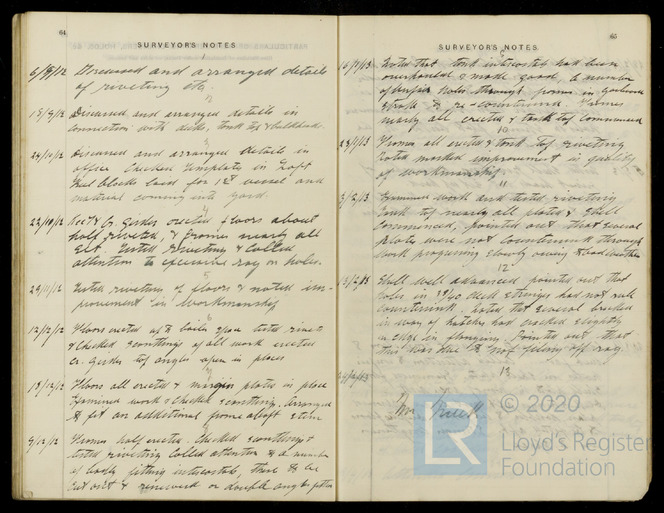 64
SURVEYOR'S NOTES
6/8/12 Discussed and arranged details
of riveting etc.
Discussed and arranged details in
connection with decks, tank top & bulkheads.
Discussed and arranged details in
office. Checked templates in Loft
Keel blocks laid for 1st vessel and
material coming into yard.
22/10/12 Keel & Cr. Girder erected floors about
half riveted, & frames nearly all
Tested riveting & called
attention to excessive rag on holes.
29/11/12 Tested riveting of floors & noted im-
provement in workmanship
12/12/12 Floors erected up to boiler space tested rivets
& checked scantlings of all work erected
Cr. Girder top angles open in places
18/12/12 Floors all erected & margin plates in place
Examined work & checked scantlings. Arranged
to fit an additional frame abaft stem
Frames half erected. Checked scantlings &
tested riveting called attention to a number
of badly fitting intercostals, these to be
cut out & renewed or double angles fitted
65
SURVEYOR'S NOTES
Noted that tank intercostals had been
overhauled & made good, a number
of unfair holes through frames in
strake to be re-countersunk. Frames
nearly all erected & tank top commenced
10
Frames all erected & tank top riveting
noted marked improvement in quality
of workmanship
11
Examined work and tested riveting
tank top nearly all plated & shell
commenced, pointed out that several
plates were not countersunk through
work progressing slowly owing to bad weather
12
Shell well advanced pointed out that
holes in deck stringer had not
countersunk, noted that several brackets
in way of hatches had cracked slightly
on edge in flanging. Pointed out that
this was due to not filing off rag.
13
LR
© 2020
Lloyd's Register
Foundation